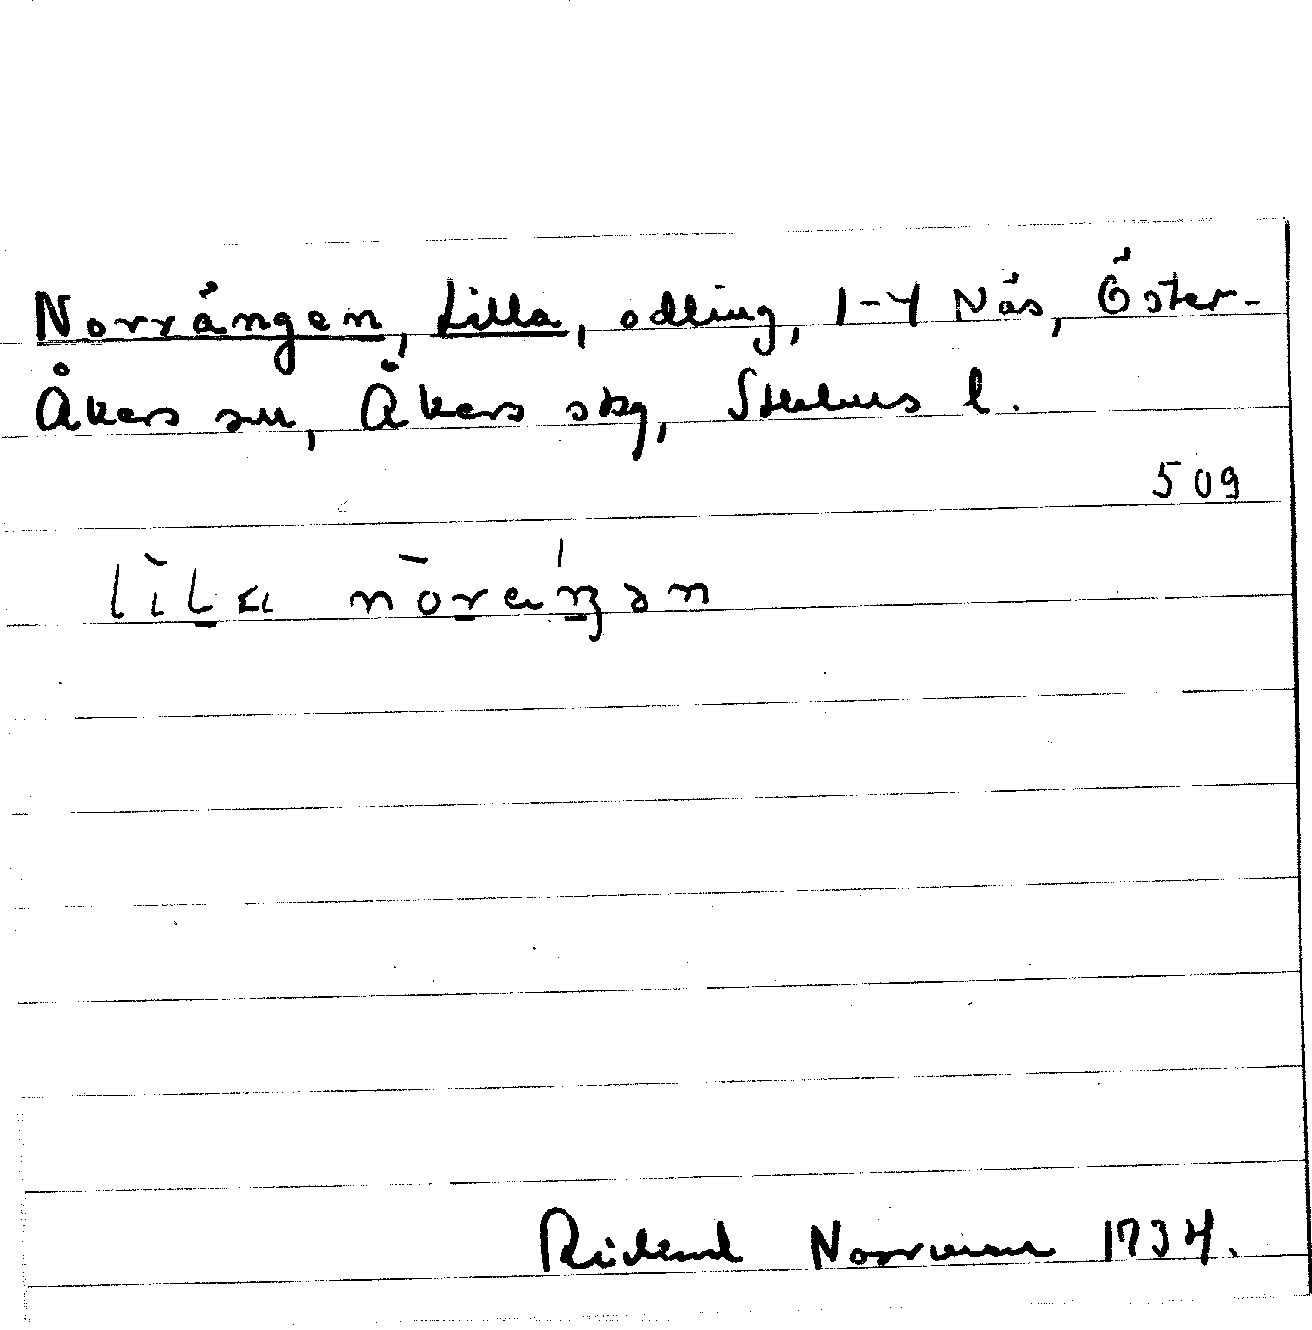 Norrängen, Lilla, odling, 1-4 Näs, Öster-
Åkers sn, Åkers skg, Sthlms l.
509
lìla nōräŋən
Rickard Norrman 1934.